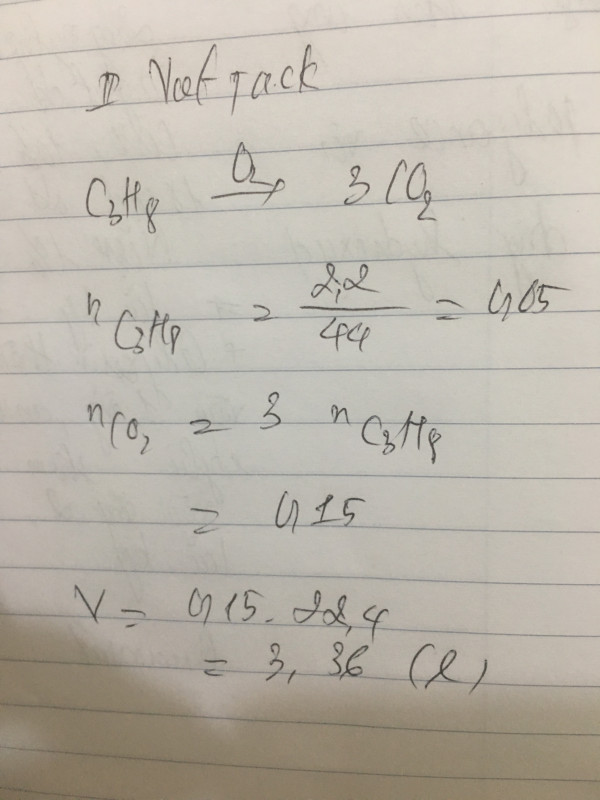 C₃H₈ →(O₂) 3 CO₂
nC₃H₈ = 2,2/44 = 0,05
nCO₂ = 3 nC₃H₈
= 0,15
V = 0,15 . 22,4
= 3,36 (l)